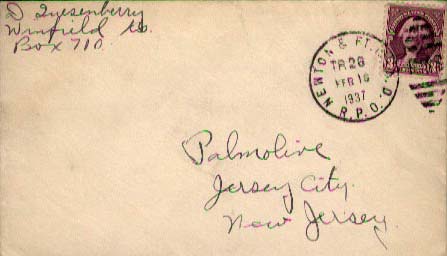 D Quesenberry
Winfield Ks.
Box 710.
NEWTON & FT.
TR.26
FEB 16
1937
R.P.O.
Palmolive
Jersey City.
New Jersey.